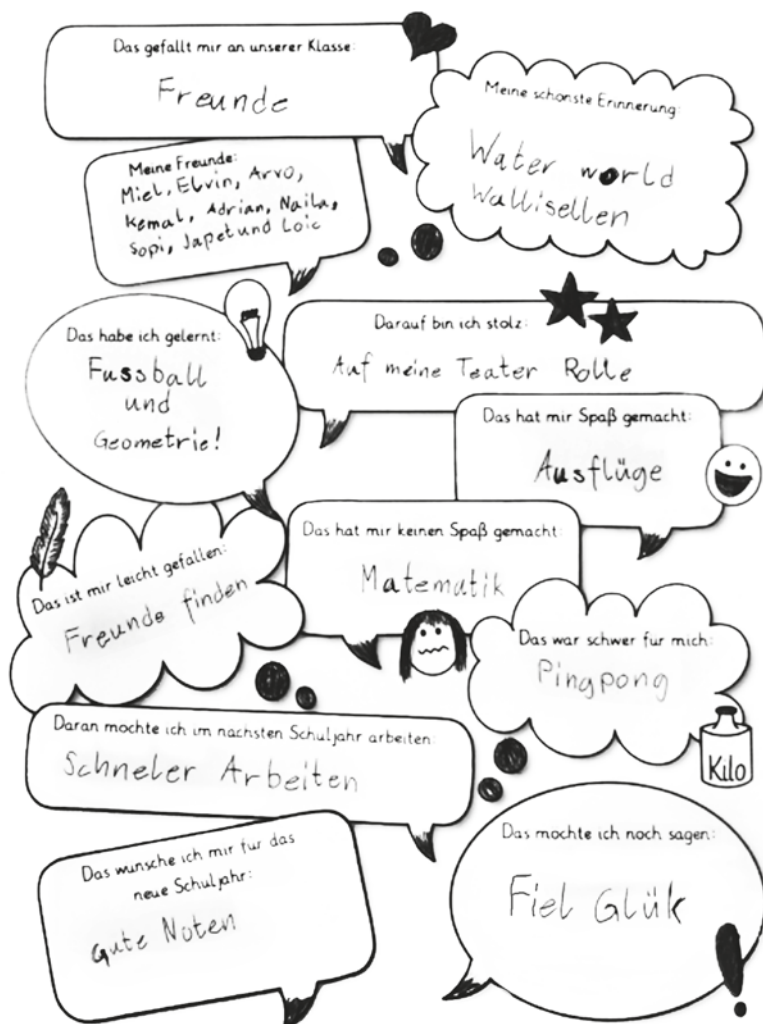 Das gefallt mir an unserer Klasse:
Freunde
Meine schonste Erinnerung:
Water world
Wallisellen
Meine Freunde:
Miel, Elvin, Arvo,
Kemal, Adrian, Naila,
Sopi, Japet und Loic
Das habe ich gelernt:
Fussball
und
Geometrie!
Darauf bin ich stolz:
Auf meine Teater Rolle
Das hat mir Spaß gemacht:
Ausflüge
Das hat mir keinen Spaß gemacht:
Matematik
Das ist mir leicht gefallen:
Freunde finden
Das war schwer fur mich:
Pingpong
Kilo
Daran mochte ich im nachsten Schuljahr arbeiten:
Schneler Arbeiten
Das wunsche ich mir fur das
neue Schuljahr:
gute Noten
Das mochte ich noch sagen:
Fiel Glük